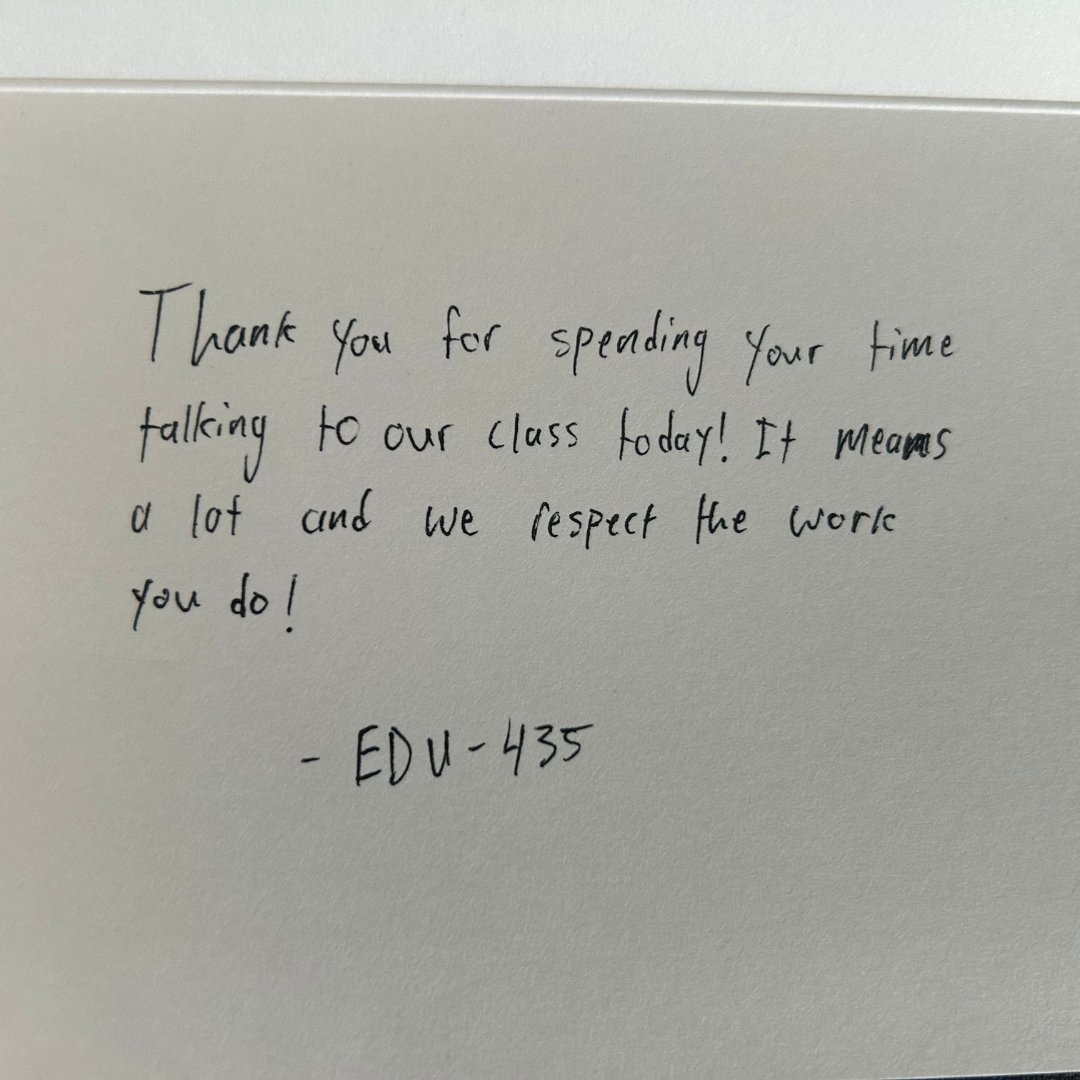 Thank you for spending your time
talking to our class today! It means
a lot and we respect the work
you do!
- EDU-435